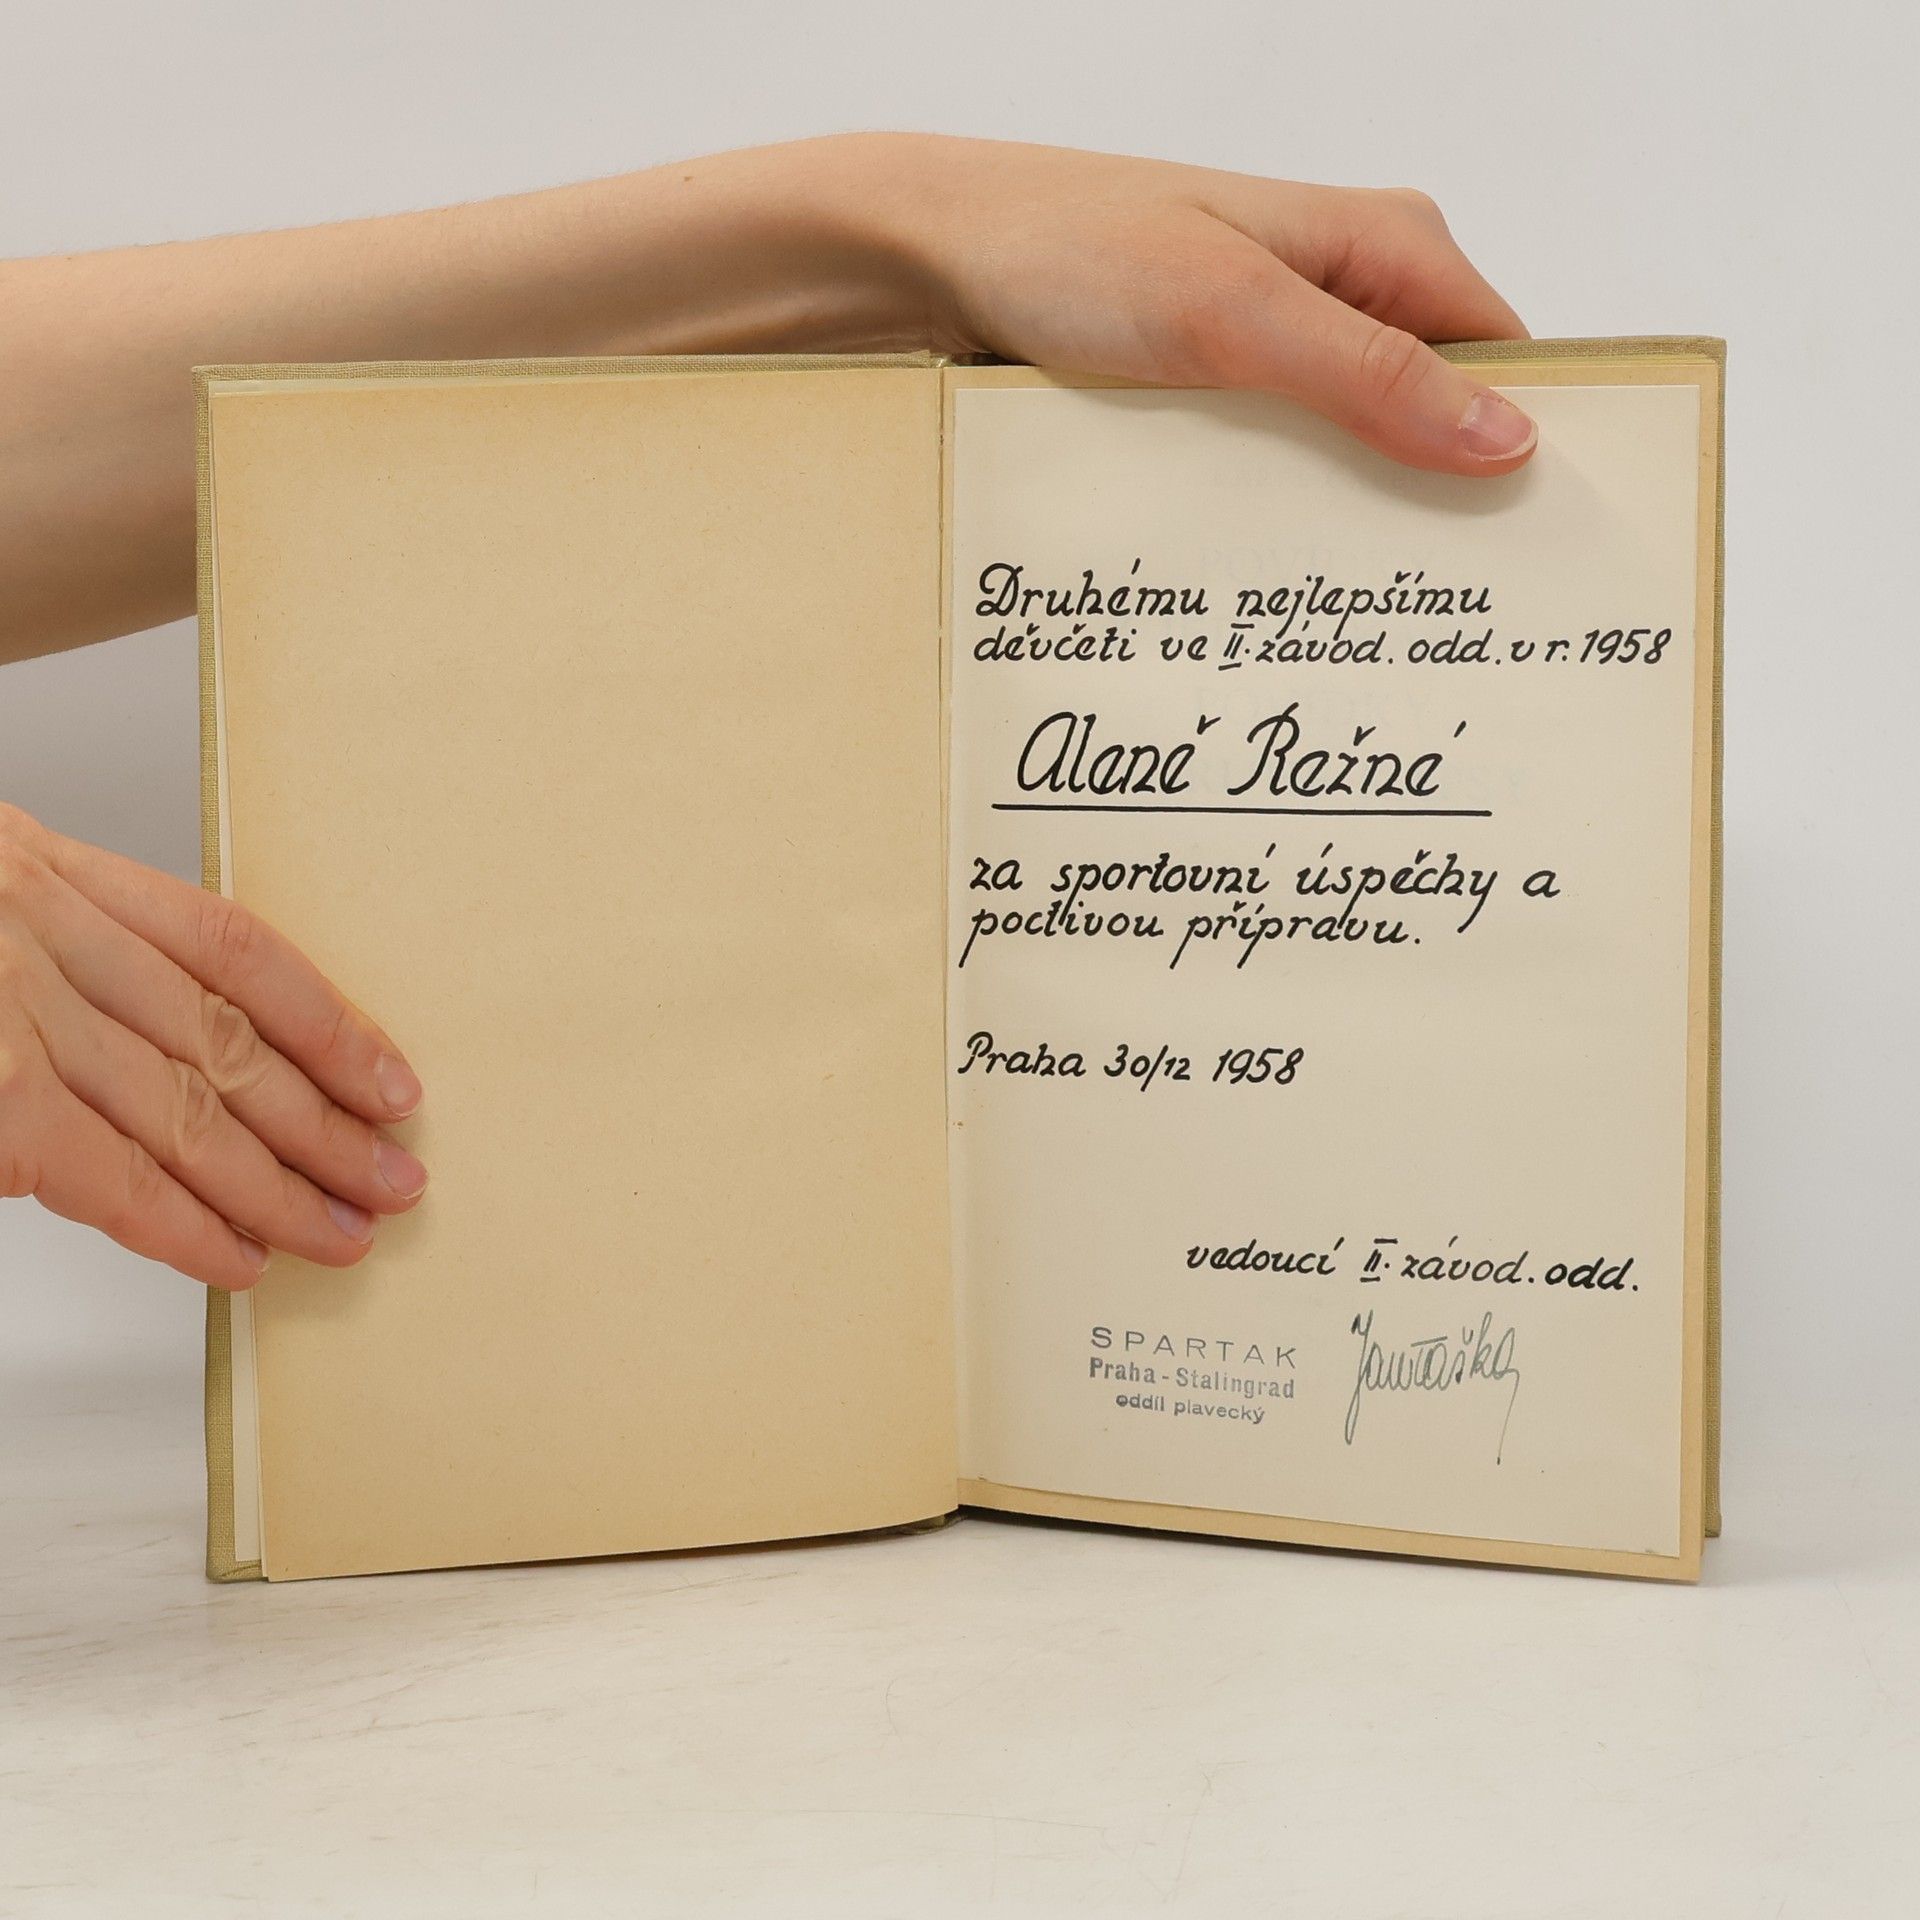 Druhému nejlepšímu
děvčeti ve II. závod. odd. v r. 1958
Aleně Režné
za sportovní úspěchy a
poctivou přípravu.
Praha 30/12 1958
vedoucí II. závod. odd.
SPARTAK
Praha - Stalingrad
oddíl plavecký